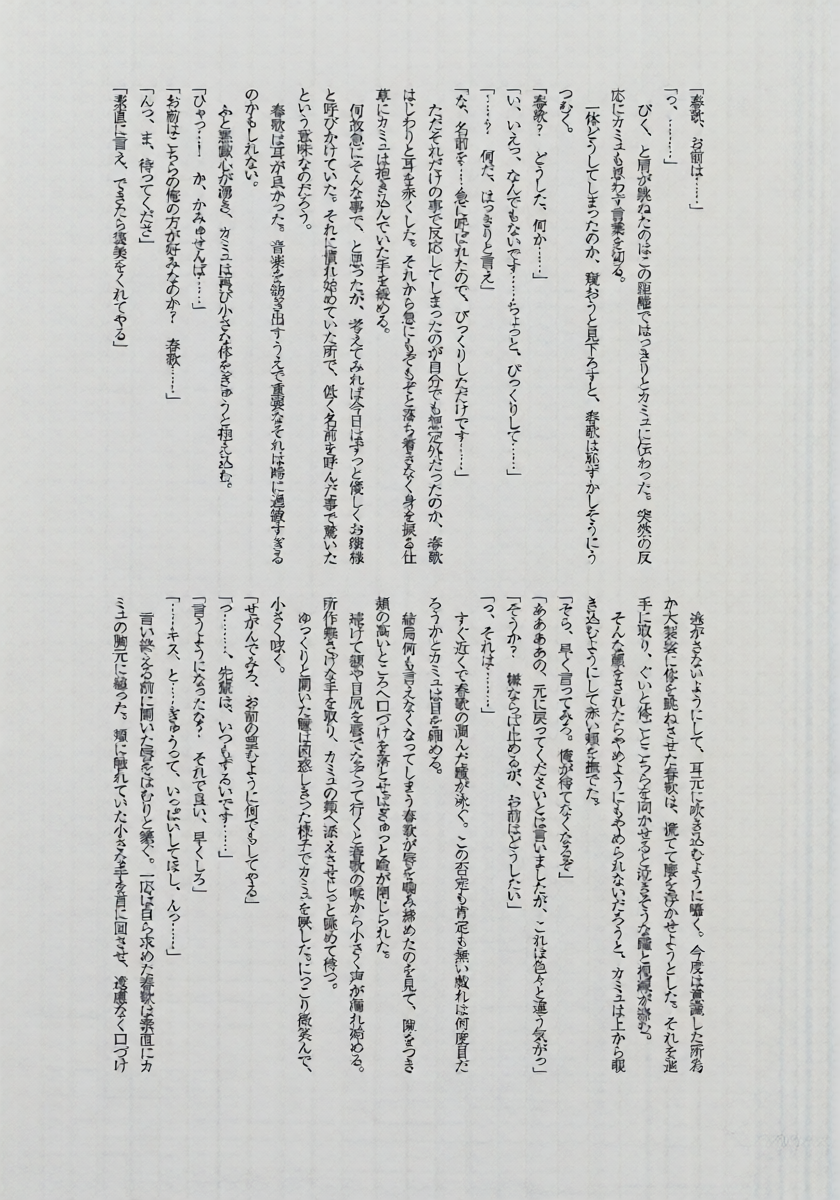 「春歌、お前は……」
「っ、………」
びく、と肩が跳ねたのはこの距離ではっきりとカミュに伝わった。突然の反
応にカミュも思わず言葉を切る。
一体どうしてしまったのか、窺おうと見下ろすと、春歌は恥ずかしそうにう
つむく。
「春歌？　どうした、何か……」
「い、いえっ、なんでもないです……ちょっと、びっくりして……」
「……？　何だ、はっきりと言え」
「な、名前を…急に呼ばれたので、びっくりしただけです……」
ただそれだけの事で反応してしまったのが自分でも想定外だったのか、春歌
はじわりと耳を赤くした。それから急にもぞもぞと落ち着きなく身を振る仕
草にカミュは抱き込んでいた手を緩める。
何故急にそんな事で、と思ったが、考えてみれば今日はずっと優しくお嬢様
と呼びかけていた。それに慣れ始めていた所で、低く名前を呼んだ事で驚いた
という意味なのだろう。
春歌は耳が良かった。音楽を紡ぎ出すうえで重要なそれは時に過敏すぎる
のかもしれない。
ふと悪戯心が湧き、カミュは再び小さな体をぎゅうと抱え込む。
「ひゃっ…！　か、かみゅせんぱ……」
「お前はこちらの俺の方が好みなのか？　春歌……」
「んっ、ま、待ってくださ」
「素直に言え、できたら褒美をくれてやる」
逃がさないようにして、耳元に吹き込むように囁く。今度は意識した所為
か大袈裟に体を跳ねさせた春歌は、慌てて腰を浮かせようとした。それを逃
手に取り、ぐいと体ごとこちらを向かせると泣きそうな瞳と視線が絡む。
そんな顔をされたらやめようにもやめられないだろうと、カミュは上から覗
き込むようにして赤い頬を撫でた。
「そら、早く言ってみろ。俺が待てなくなるぞ」
「ああああの、元に戻ってくださいとは言いましたが、これは色々と違う気がっ」
「そうか？　嫌ならば止めるが、お前はどうしたい」
「っ、それは………」
すぐ近くで春歌の潤んだ瞳が泳ぐ。この否定も肯定も無い戯れは何度目だ
ろうかとカミュは目を細める。
結局何も言えなくなってしまう春歌が唇を噛み締めたのを見て、隙をつき
頬の高いところへ口づけを落とせばぎゅっと瞳が閉じられた。
続けて額や目尻を唇でなぞって行くと春歌の喉から小さく声が漏れ始める。
所作無さげな手を取り、カミュの頬へ添えさせじっと眺めて待つ。
ゆっくりと開いた瞳は困惑しきった様子でカミュを映した。にっこり微笑んで、
小さく呟く。
「せがんでみろ、お前の望むように何でもしてやる」
「っ………、先輩は、いつもずるいです……」
「言うようになったな？　それで良い、早くしろ」
「……キス、と……ぎゅうって、いっぱいしてほし、んっ……」
言い終える前に開いた唇をはむりと塞ぐ。一応は自ら求めた春歌は素直にカ
ミュの胸元に縋った。頬に触れていた小さな手を首に回させ、遠慮なく口づけ